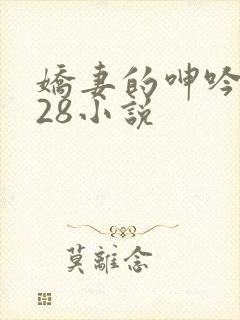 嬌妻的呻吟
28小說
莫離念